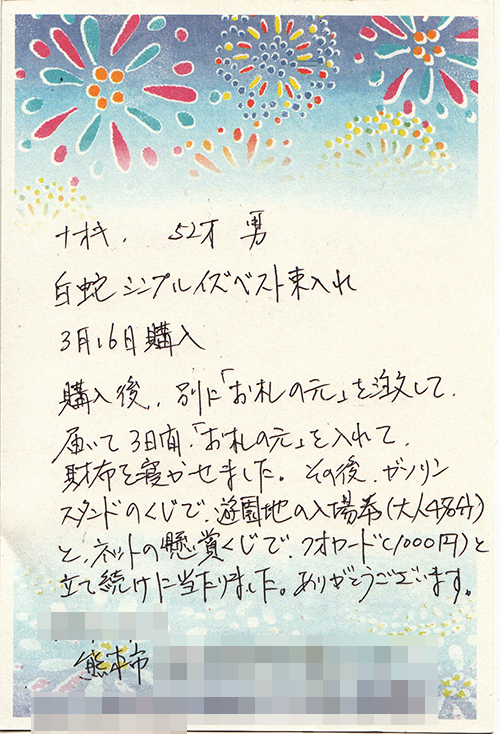 ナオキ. 52才 男
白蛇シンプルイズベスト束入れ
3月16日購入
購入後、別に「お札の元」を注文して、
届いて3日間、「お札の元」を入れて、
財布を寝かせました。その後、ガソリン
スタンドのくじで、遊園地の入場券(大人4名分)
と、ネットの懸賞くじで、クオカード(1,000円)と
立て続けに当たりました。ありがとうございます。
熊本市